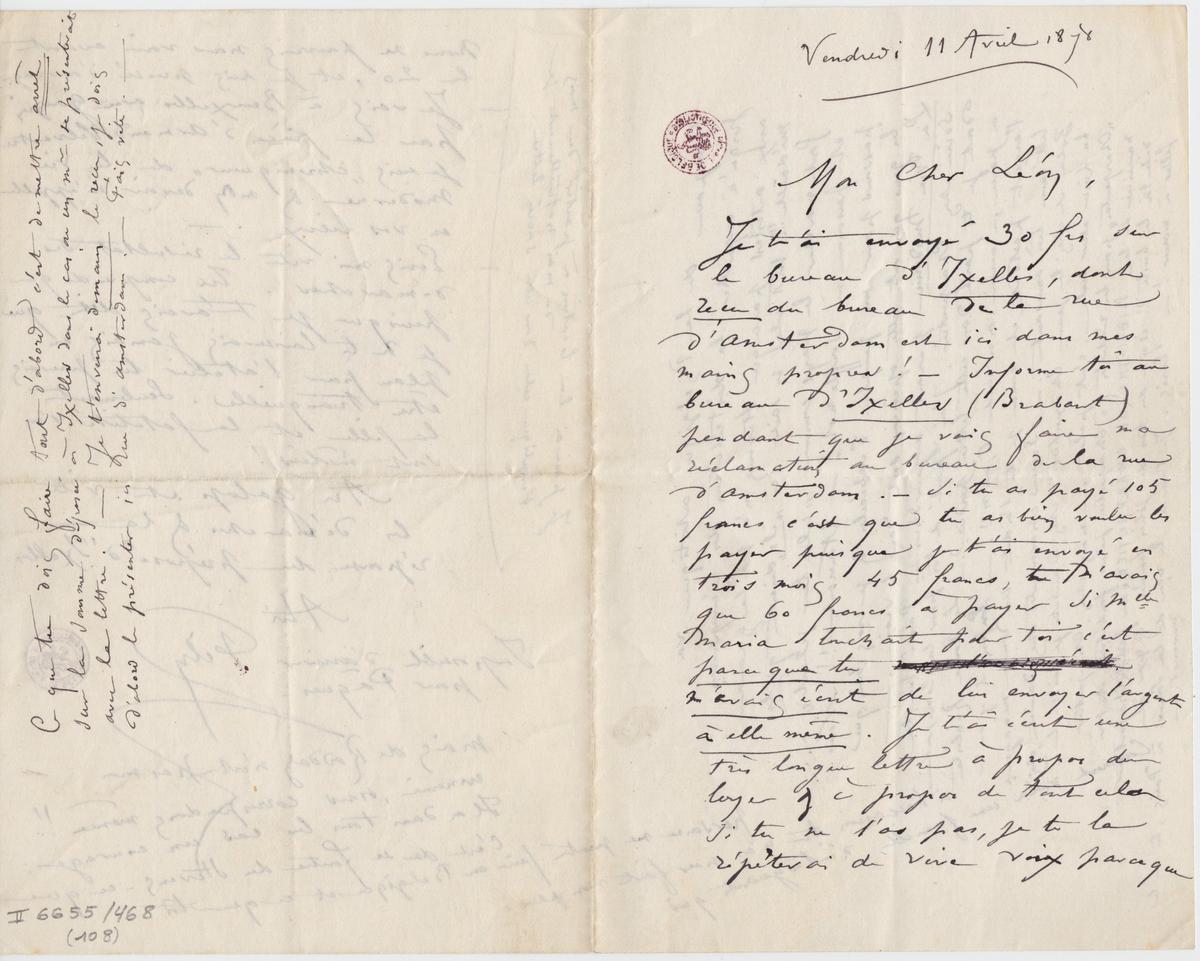 Vendredi 11 Avril 1878
Mon Cher Léon,
Je t'ai envoyé 30 frs sur
le bureau d'Ixelles, dont
reçu du bureau de la rue
d'amsterdam est ici dans mes
mains propres! — Informe toi au
bureau d'Ixelles (Brabant)
pendant que je vais faire ma
réclamation au bureau de la rue
d'amsterdam. — Si tu as payé 105
francs c'est que tu as bien voulu les
payer puisque je t'ai envoyé en
trois mois 45 francs, tu n'avais
que 60 francs à payer Si Melle
Maria touchait pour toi c'est
parceque tu
m'avais écrit de lui envoyer l'argent
à elle même. Je t'ai écrit une
très longue lettre à propos du
loyer & à propos de tout cela
Si tu ne l'as pas, je te la
répèterai de vive voix parceque
Ce que tu dois faire tout d'abord c'est de mettre arrêt
sur la somme déposée à Ixelles dans le cas où un Mr se présenterait
avec la lettre. — Je t'enverrai demain le reçu, je dois
d'abord le présenter ici Rue d'amsterdam. — Fais vite. —
II 6655/468
(108)